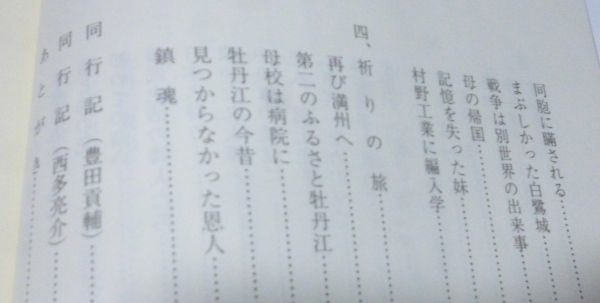 同胞に騙される
まぶしかった白鷺城
戦争は別世界の出来事
母の帰国
記憶を失った妹
村野工業に編入学
四、祈りの旅
再び満州へ
第二のふるさと牡丹江
母校は病院に
牡丹江の今昔
見つからなかった恩人
鎮魂
同行記（豊田貢輔）
同行記（西多亮介）
あとがき